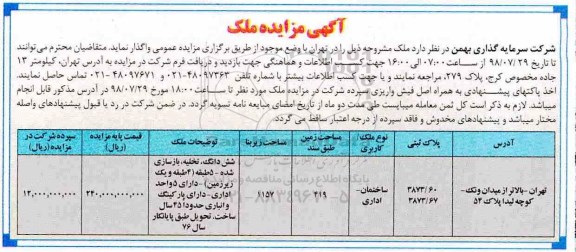 آگهی مزایده ملک
شرکت سرمایه گذاری بهمن در نظر دارد ملک مشروحه ذیل را در تهران با وضع موجود از طریق برگزاری مزایده عمومی واگذار نماید. متقاضیان محترم می‌توانند
تا تاریخ ۹۸/۰۷/۲۹ از ساعت ۰۷:۰۰ الی ۱۶:۰۰ جهت کسب اطلاعات و هماهنگی جهت بازدید و دریافت فرم شرکت در مزایده به آدرس تهران، کیلومتر ۱۳
جاده مخصوص کرج، پلاک ۲۷۹ مراجعه نمایند و یا جهت کسب اطلاعات بیشتر با شماره تلفن ۴۸۰۹۷۳۶۳-۰۲۱ و ۴۸۰۹۷۶۷۱-۰۲۱ تماس حاصل نمایند.
اخذ پاکتهای پیشنهادی به همراه اصل فیش واریزی سپرده شرکت در مزایده ملک مورد نظر تا ساعت ۱۸:۰۰ مورخ ۹۸/۰۷/۲۹ در آدرس مذکور قابل انجام
میباشد. لازم به ذکر است کل ثمن معامله میبایست طی مدت دو ماه از تاریخ امضای مبایعه نامه تسویه گردد. در ضمن شرکت در رد یا قبول پیشنهادهای واصله
مختار میباشد و پیشنهادهای مخدوش و فاقد سپرده از درجه اعتبار ساقط می گردد.
آدرس
پلاک ثبتی
نوع ملک/ کاربری
مساحت زمین طبق سند
مساحت زیربنا
توضیحات ملک
قیمت پایه مزایده (ریال)
سپرده شرکت در مزایده (ریال)
تهران -بالاتر از میدان ونک-
کوچه لیدا پلاک ۵۴
۳۸۷۳/۶۰
۳۸۷۳/۶۷
ساختمان-
اداری
۴۱۹
۱۱۵۷
شش دانگ، تخلیه، بازسازی
شده -۵طبقه (۴طبقه و یک
زیرزمین) -دارای ۵واحد
اداری- دارای پارکینگ
و انباری حدودا ۲۵ سال
ساخت، تحویل طبق پایانکار
سال ۷۶
۲۴۰,۰۰۰,۰۰۰,۰۰۰
۱۲,۰۰۰,۰۰۰,۰۰۰